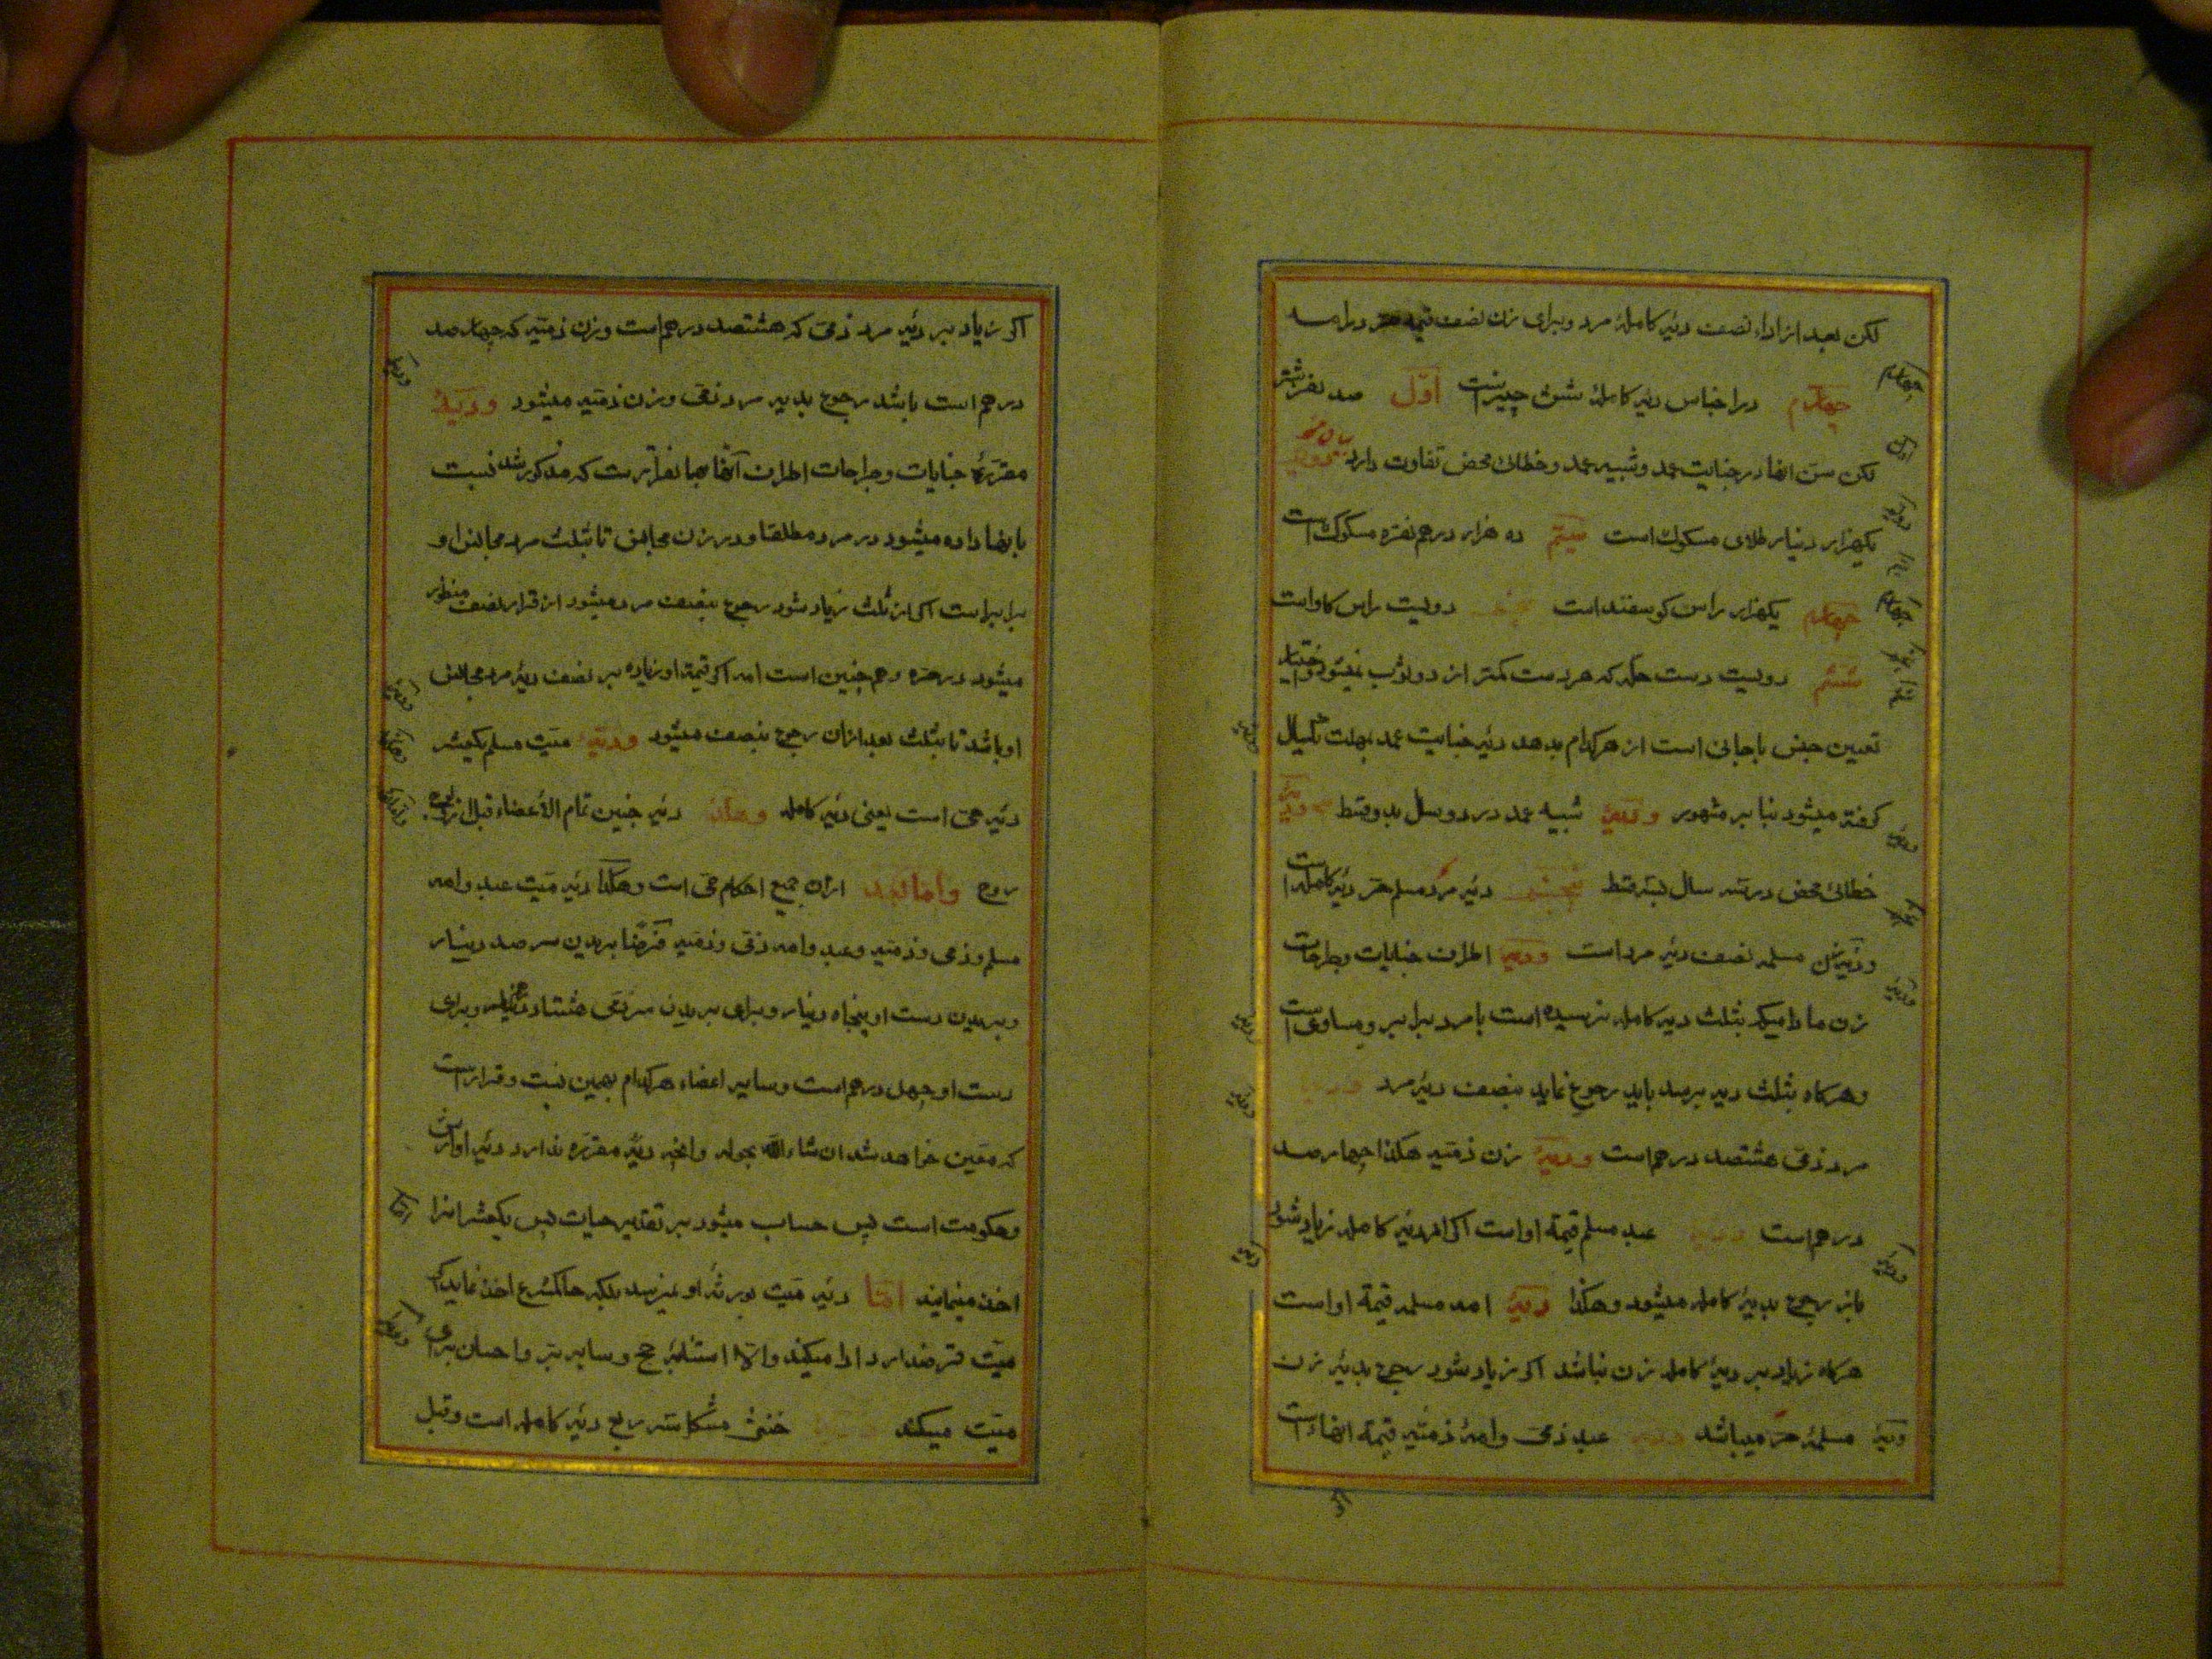 لکن بعد از اداء نصف دیهٔ کاملهٔ مرد و برای زن نصف قیمة
چهارم در اجناس دیهٔ کاملهٔ شش چیز است اوّل صد نفر شتر
لکن سن آنها در جنایت عمد و شبیه عمد و خطای محض تفاوت دارد
یکهزار دینار طلای مسکوک است سیّم ده هزار درهم نقره مسکوک است
چهارم یکهزار راس کوسفند است دویست راس کاو است
ششم دویست دست حلّه که هر دست کمتر از دو ثوب نمیشود و اختیار
تعیین جنس با جانی است از هر کدام بدهد دیهٔ جنایت عمد بمهلت یکسال
کرفته میشود بنا بر مشهور و دیهٔ شبیه عمد در دو سال بدو قسط و دیهٔ
خطای محض در سه سال بسه قسط پنجم دیهٔ مرد مسلم حر دیهٔ کامله است
و دیهٔ زن مسلمه نصف دیهٔ مرد است و دیهٔ اطراف جنایات و جراحات
زن مادامیکه بثلث دیهٔ کامله نرسیده است با مرد برابر و مساوی است
و هرکاه بثلث دیه برسد باید رجوع نماید بنصف دیهٔ مرد
مرد ذمّی هشتصد درهم است و دیهٔ زن ذمّیه هکذا چهار صد
درهم است عبد مسلم قیمة او است اکر از دیهٔ کامله زیاد شود
باز رجوع بدیهٔ کامله میشود و هکذا دیهٔ امه مسلمه قیمة او است
هرکاه زیاد بر دیهٔ کامله زن نباشد اکر زیاد شود رجوع بدیهٔ زن
مسلمهٔ حرّ میباشد عبد ذمّی و امهٔ ذمّیه قیمة آنها است
اکر زیاد بر دیهٔ مرد ذمّی که هشتصد درهم است و زن ذمّیه که چهار صد
درهم است باشد رجوع بدیه مرد ذمّی و زن ذمّیه میشود و دیهٔ
مقررهٔ جنایات و جراحات اطراف آنها که مذکور شد نسبت
بآنها داده میشود در مرد مطلقا و در زن مجانس تا بثلث مرد مجانس او
برابر است اکر از ثلث زیاد شود رجوع بنصف مرد میشود از قرار نصف منظور
میشود در حره و هم چنین است امه اکر قیمة او زیاده بر نصف دیهٔ مرد مجانس
او باشد تا بثلث بعد از آن رجوع بنصف میشود و دیهٔ میّت مسلم یکعشر
دیهٔ حی است یعنی دیهٔ کامله و هکذا دیهٔ جنین تمام الأعضاء قبل از
روح و اما بعد از آن جمیع احکام حی است و هکذا دیهٔ میّت عبد و امه
مسلم و ذمی و ذمّیه و عبد و امه ذمّی و ذمّیه فرضًا بریدن سر صد دینار
و بریدن دست او پنجاه دینار و برای بریدن سر ذمّی هشتاد و برای
دست او چهل درهم است و سایر اعضاء هرکدام بهمین نسبت و قرار است
که معین خواهد شد ان شاء الله و آنچه دیهٔ مقرره ندارد دیهٔ او ارش
و حکومت است پس حساب میشود بر تقدیر حیات پس یکعشر انرا
اخذ مینمایند امّا دیهٔ میّت بورثه او نمیرسد بلکه حاکم شرع اخذ نماید اکر
میّت قرض دارد ادا میکند و الّا حج و سایر برّ و احسان برای
میّت میکند خنثی مشکل سه ربع دیهٔ کامله است و قبل